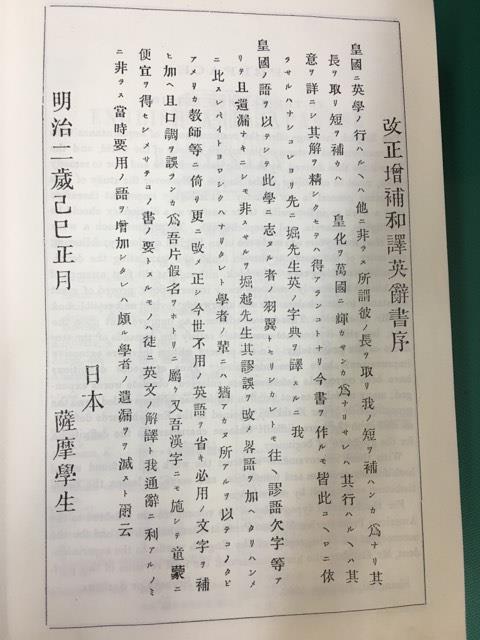 改正增補和譯英辭書序
皇國ニ英學ノ行ハルヽハ他ニ非ラス所謂彼ノ長ヲ取リ我ノ短ヲ補ハンカ爲ナリ其
長ヲ取リ短ヲ補ウハ 皇化ヲ萬國ニ輝カサンカ爲ナリサレハ其行ハルヽハ其
意ヲ詳ニシ其解ヲ精シクセテハ得アランコトナリ今書ヲ作ルモ皆此コヽロニ依
ラサルハナシコレヨリ先ニ堀先生英ノ字典ヲ譯スルニ我
皇國ノ語ヲ以テシテ此學ニ志タル者ノ羽翼トセリシカレトモ往々謬語欠字等ア
リテ且遺漏ナキニシモ非スサルヲ堀越先生其謬誤ヲ改メ畧語ヲ加ヘタリハンメ
ニ比スレハイトヨロシクハナリタレト學者ノ輩ニハ猶アカヌ所アルヲ以テコノタヒ
アメリカ教師等ニ倚リ更ニ改メ正シ今世不用ノ英語ヲ省キ必用ノ文字ヲ補
ヒ加ヘ且口調ヲ誤ランカ爲吾片假名ヲホトリニ屬ケ又吾漢字ニモ施シテ童蒙ニ
便宜ヲ得セシメサテコノ書ノ要トスルモノハ徒ニ英文ノ解譯ト我通辭ニ利アルノミ
ニ非ラス當時要用ノ語ヲ增加シタレハ頗ル學者ノ遺漏ヲ減スト爾云
明治二歲己巳正月
日本 薩摩學生